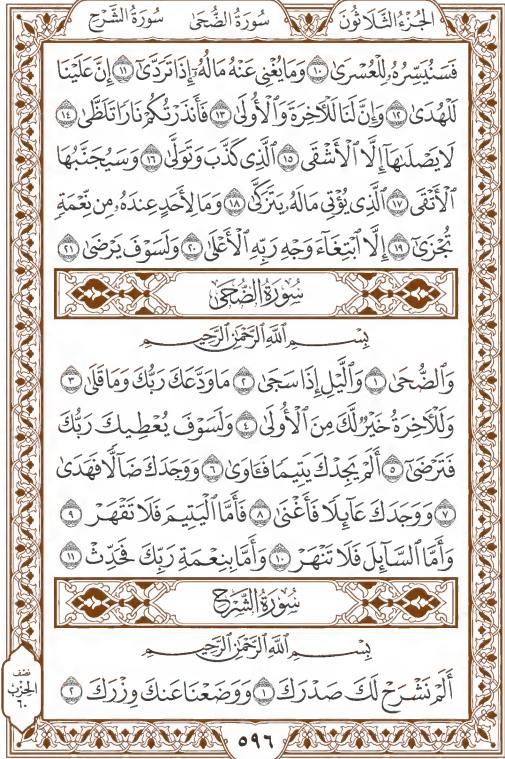 الجُزْءُ الثَّلَاثُونَ سُورَةُ الضُّحَىٰ سُورَةُ الشَّرْحِ
فَسَنُيَسِّرُهُۥ لِلۡعُسۡرَىٰ ١٠ وَمَا يُغۡنِي عَنۡهُ مَالُهُۥٓ إِذَا تَرَدَّىٰٓ ١١ إِنَّ عَلَيۡنَا
لَلۡهُدَىٰ ١٢ وَإِنَّ لَنَا لَلۡأٓخِرَةَ وَٱلۡأُولَىٰ ١٣ فَأَنذَرۡتُكُمۡ نَارٗا تَلَظَّىٰ ١٤
لَا يَصۡلَىٰهَآ إِلَّا ٱلۡأَشۡقَى ١٥ ٱلَّذِي كَذَّبَ وَتَوَلَّىٰ ١٦ وَسَيُجَنَّبُهَا
ٱلۡأَتۡقَى ١٧ ٱلَّذِي يُؤۡتِي مَالَهُۥ يَتَزَكَّىٰ ١٨ وَمَا لِأَحَدٍ عِندَهُۥ مِن نِّعۡمَةٖ
تُجۡزَىٰٓ ١٩ إِلَّا ٱبۡتِغَآءَ وَجۡهِ رَبِّهِ ٱلۡأَعۡلَىٰ ٢٠ وَلَسَوۡفَ يَرۡضَىٰ ٢١
سُورَةُ الضُّحَىٰ
بِسۡمِ ٱللَّهِ ٱلرَّحۡمَٰنِ ٱلرَّحِيمِ
وَٱلضُّحَىٰ ١ وَٱلَّيۡلِ إِذَا سَجَىٰ ٢ مَا وَدَّعَكَ رَبُّكَ وَمَا قَلَىٰ ٣
وَلَلۡأٓخِرَةُ خَيۡرٞ لَّكَ مِنَ ٱلۡأُولَىٰ ٤ وَلَسَوۡفَ يُعۡطِيكَ رَبُّكَ
فَتَرۡضَىٰٓ ٥ أَلَمۡ يَجِدۡكَ يَتِيمٗا فَـَٔاوَىٰ ٦ وَوَجَدَكَ ضَآلّٗا فَهَدَىٰ
٧ وَوَجَدَكَ عَآئِلٗا فَأَغۡنَىٰ ٨ فَأَمَّا ٱلۡيَتِيمَ فَلَا تَقۡهَرۡ ٩
وَأَمَّا ٱلسَّآئِلَ فَلَا تَنۡهَرۡ ١٠ وَأَمَّا بِنِعۡمَةِ رَبِّكَ فَحَدِّثۡ ١١
سُورَةُ الشَّرْحِ
بِسۡمِ ٱللَّهِ ٱلرَّحۡمَٰنِ ٱلرَّحِيمِ
أَلَمۡ نَشۡرَحۡ لَكَ صَدۡرَكَ ١ وَوَضَعۡنَا عَنكَ وِزۡرَكَ ٢
نصف
الحزب
٦٠
٥٩٦